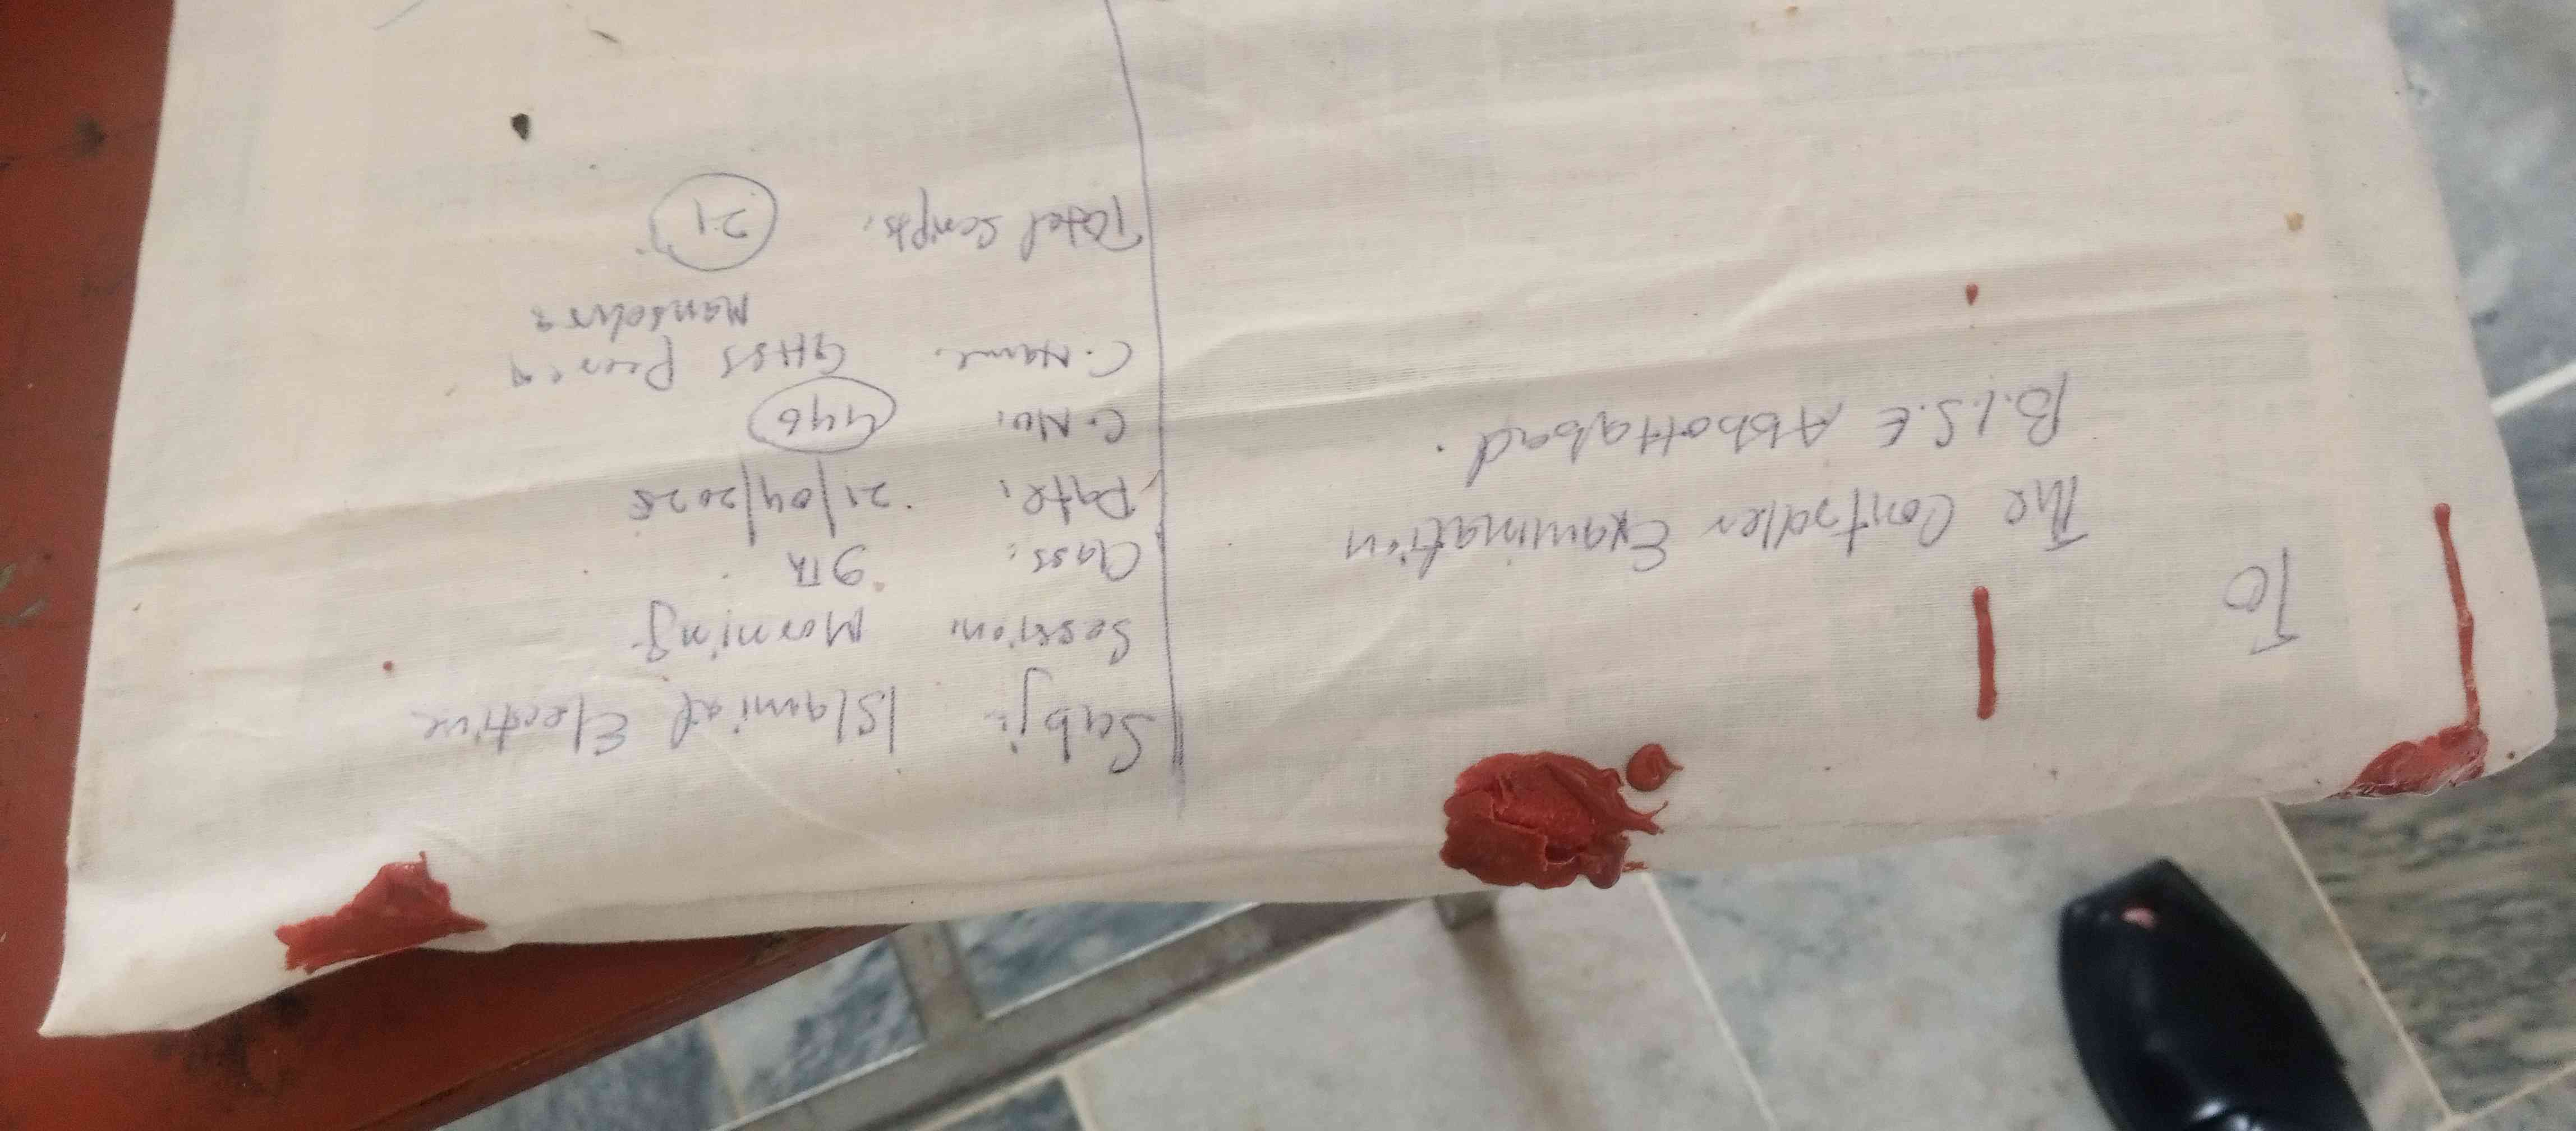 To
The Controller Examination
B.I.S.E Abbottabad.
Subj: Islamiat Elective
Session: Morning
Class: 9Th
Date: 21/04/2025
C.No: 446
C.Name. GHSS
Mansehra
Total Scripts: 21